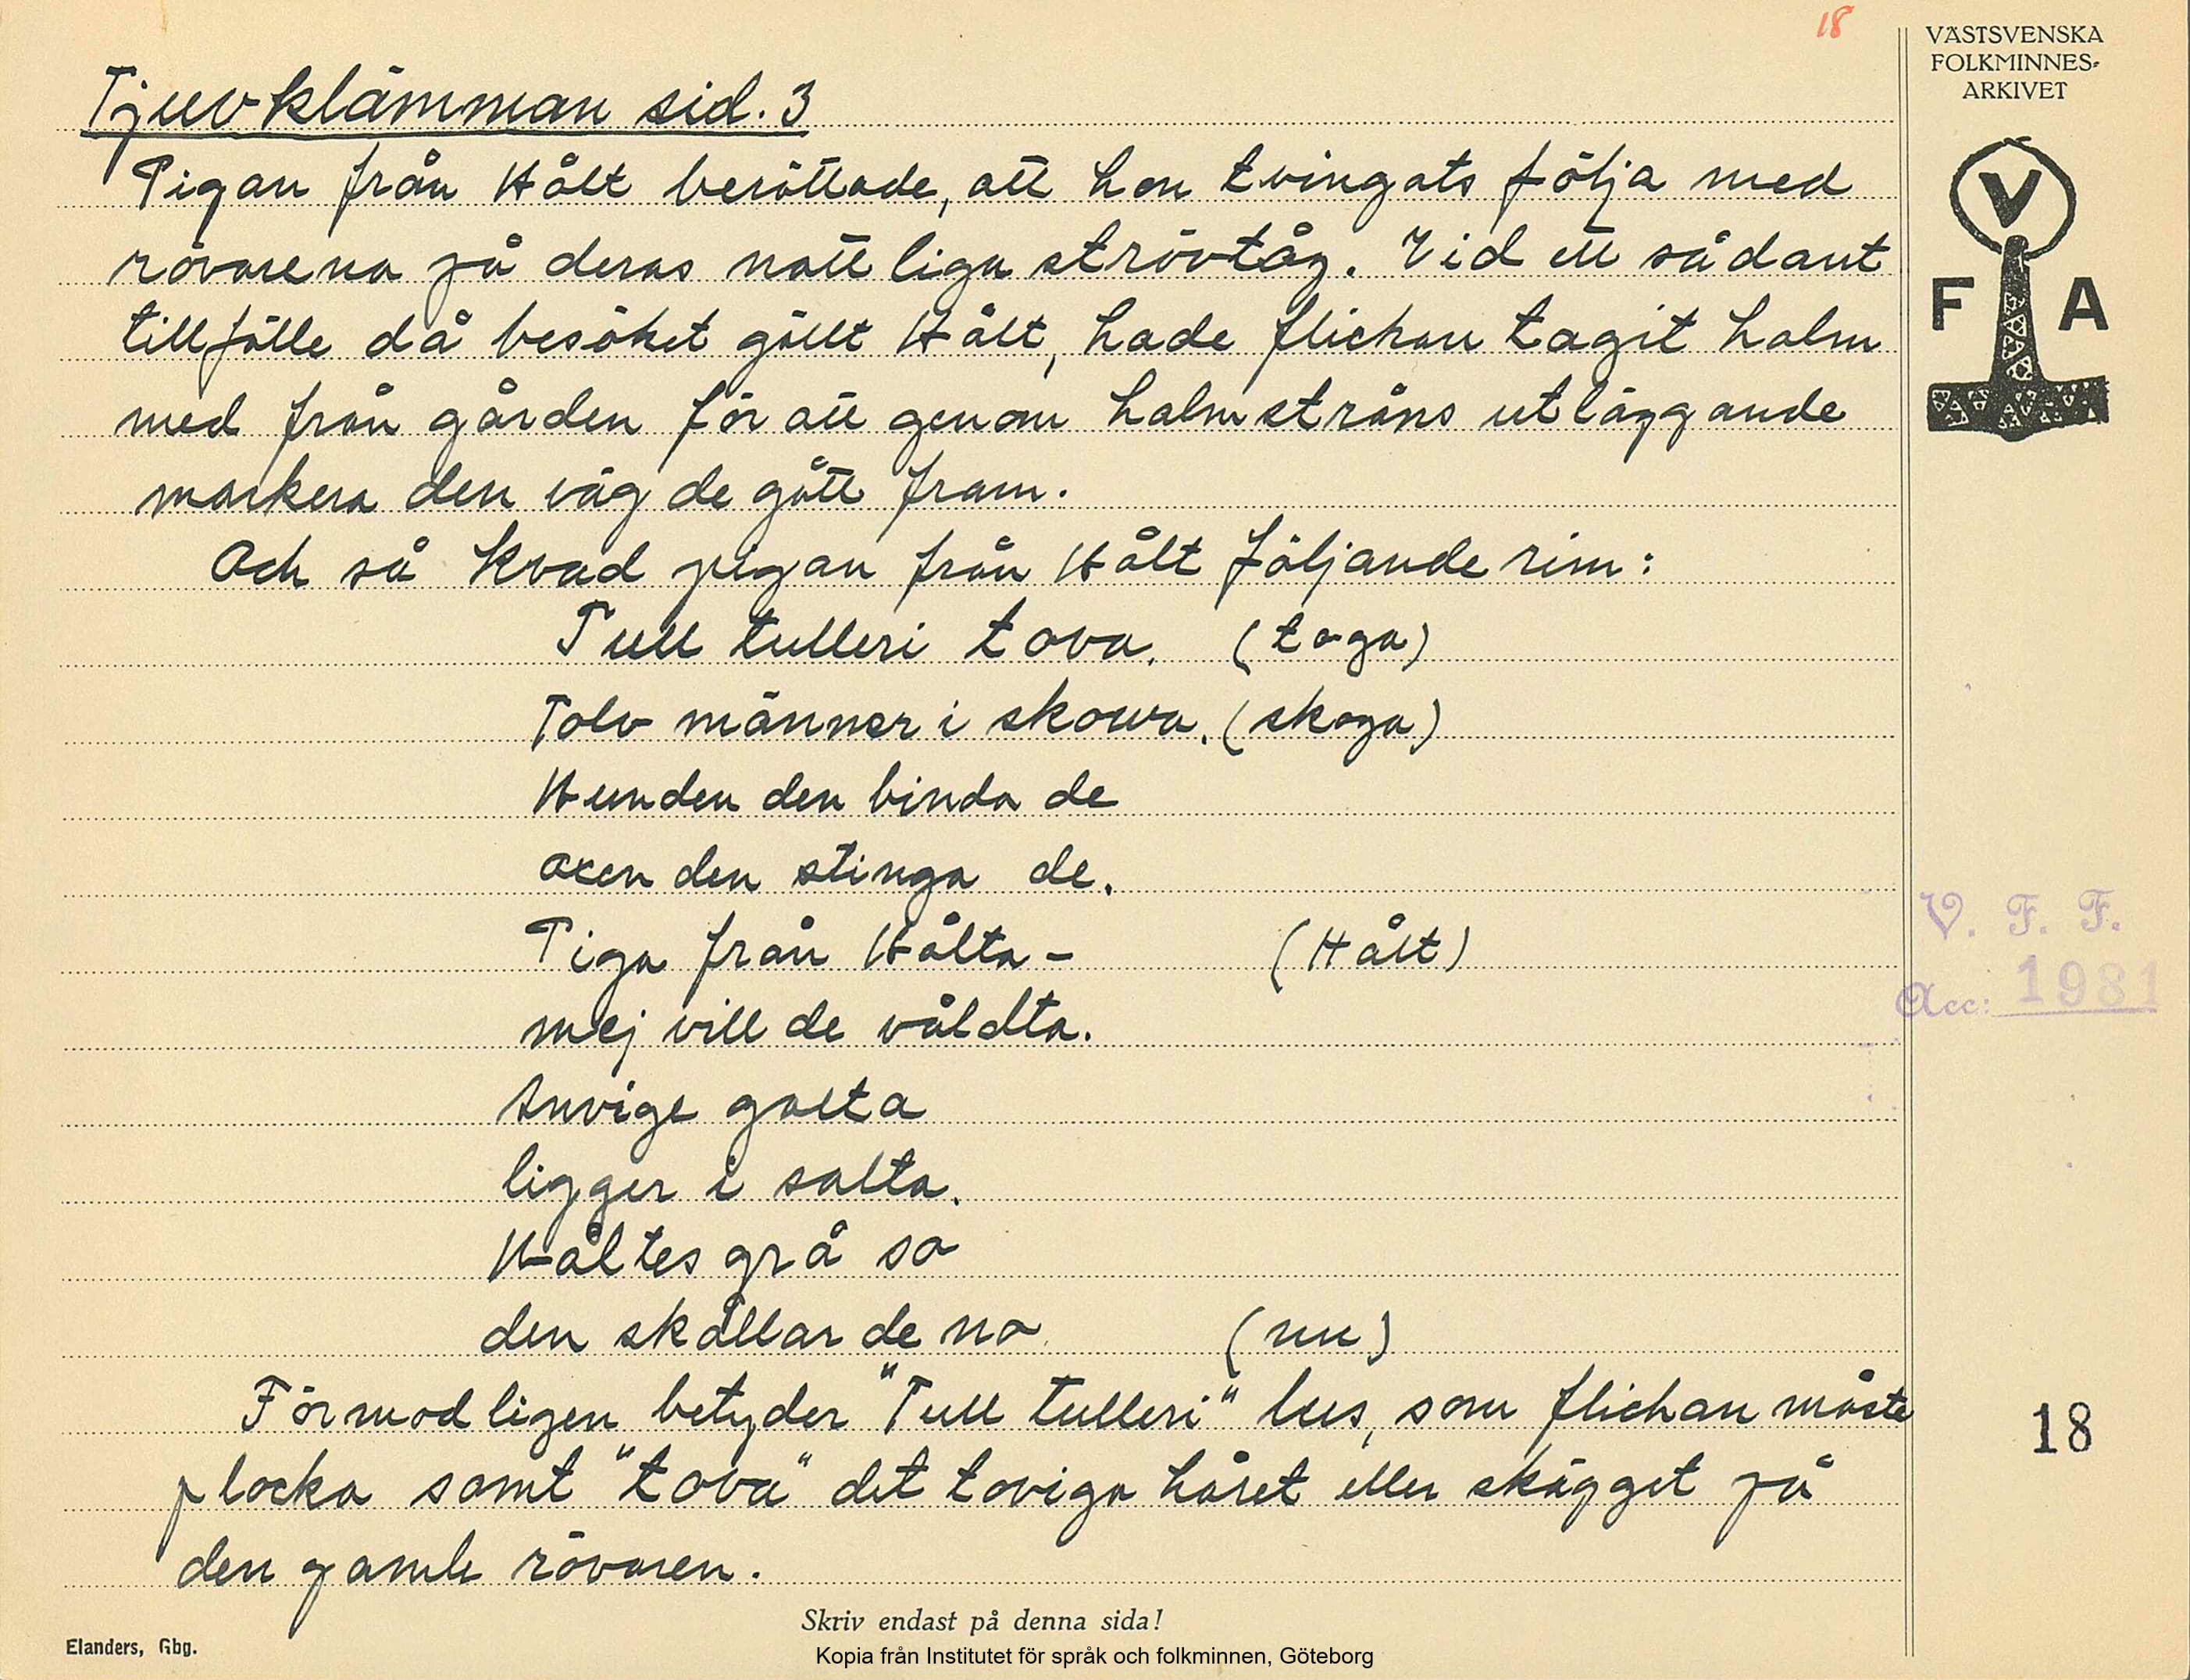 18
VÄSTSVENSKA
FOLKMINNES-
ARKIVET
V
F A
Tjuvklämman sid. 3
Pigan från Hålt berättade, att hon tvingats följa med
rövarena på deras nattliga strövtåg. Vid ett sådant
tillfälle då besöket gällt Hålt, hade flickan tagit halm
med från gården för att genom halmstråns utläggande
markera den väg de gått fram.
Och så kvad pigan från Hålt följande rim:
Tull tulleri tova. (toga)
Tolv männer i skowa. (skoga)
Hunden den binda de
oxen den stinga de.
Piga från Hålta - (Hålt)
mej vill de våldta.
Anvige galta
ligger i salta.
Håltes grå so
den skållar de no (nu)
Förmodligen betyder "Tull tulleri" lus, som flickan måste
plocka samt "tova" det toviga håret eller skägget på
den gamle rövaren.
V. F. F.
Acc: 1981
18
Skriv endast på denna sida!
Elanders, Gbg.
Kopia från Institutet för språk och folkminnen, Göteborg